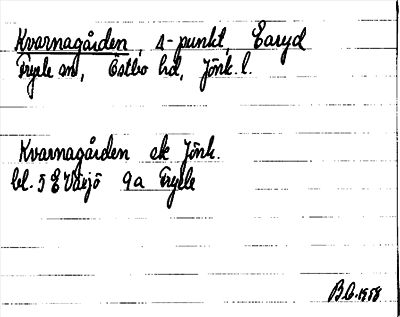 Kvarnagården, s-punkt, Earyd
Fryele sn, Östbo hd, Jönk. l.
Kvarnagården ek Jönk.
bl. 5 E Värjö 9 a Fryele
B.G. 1958